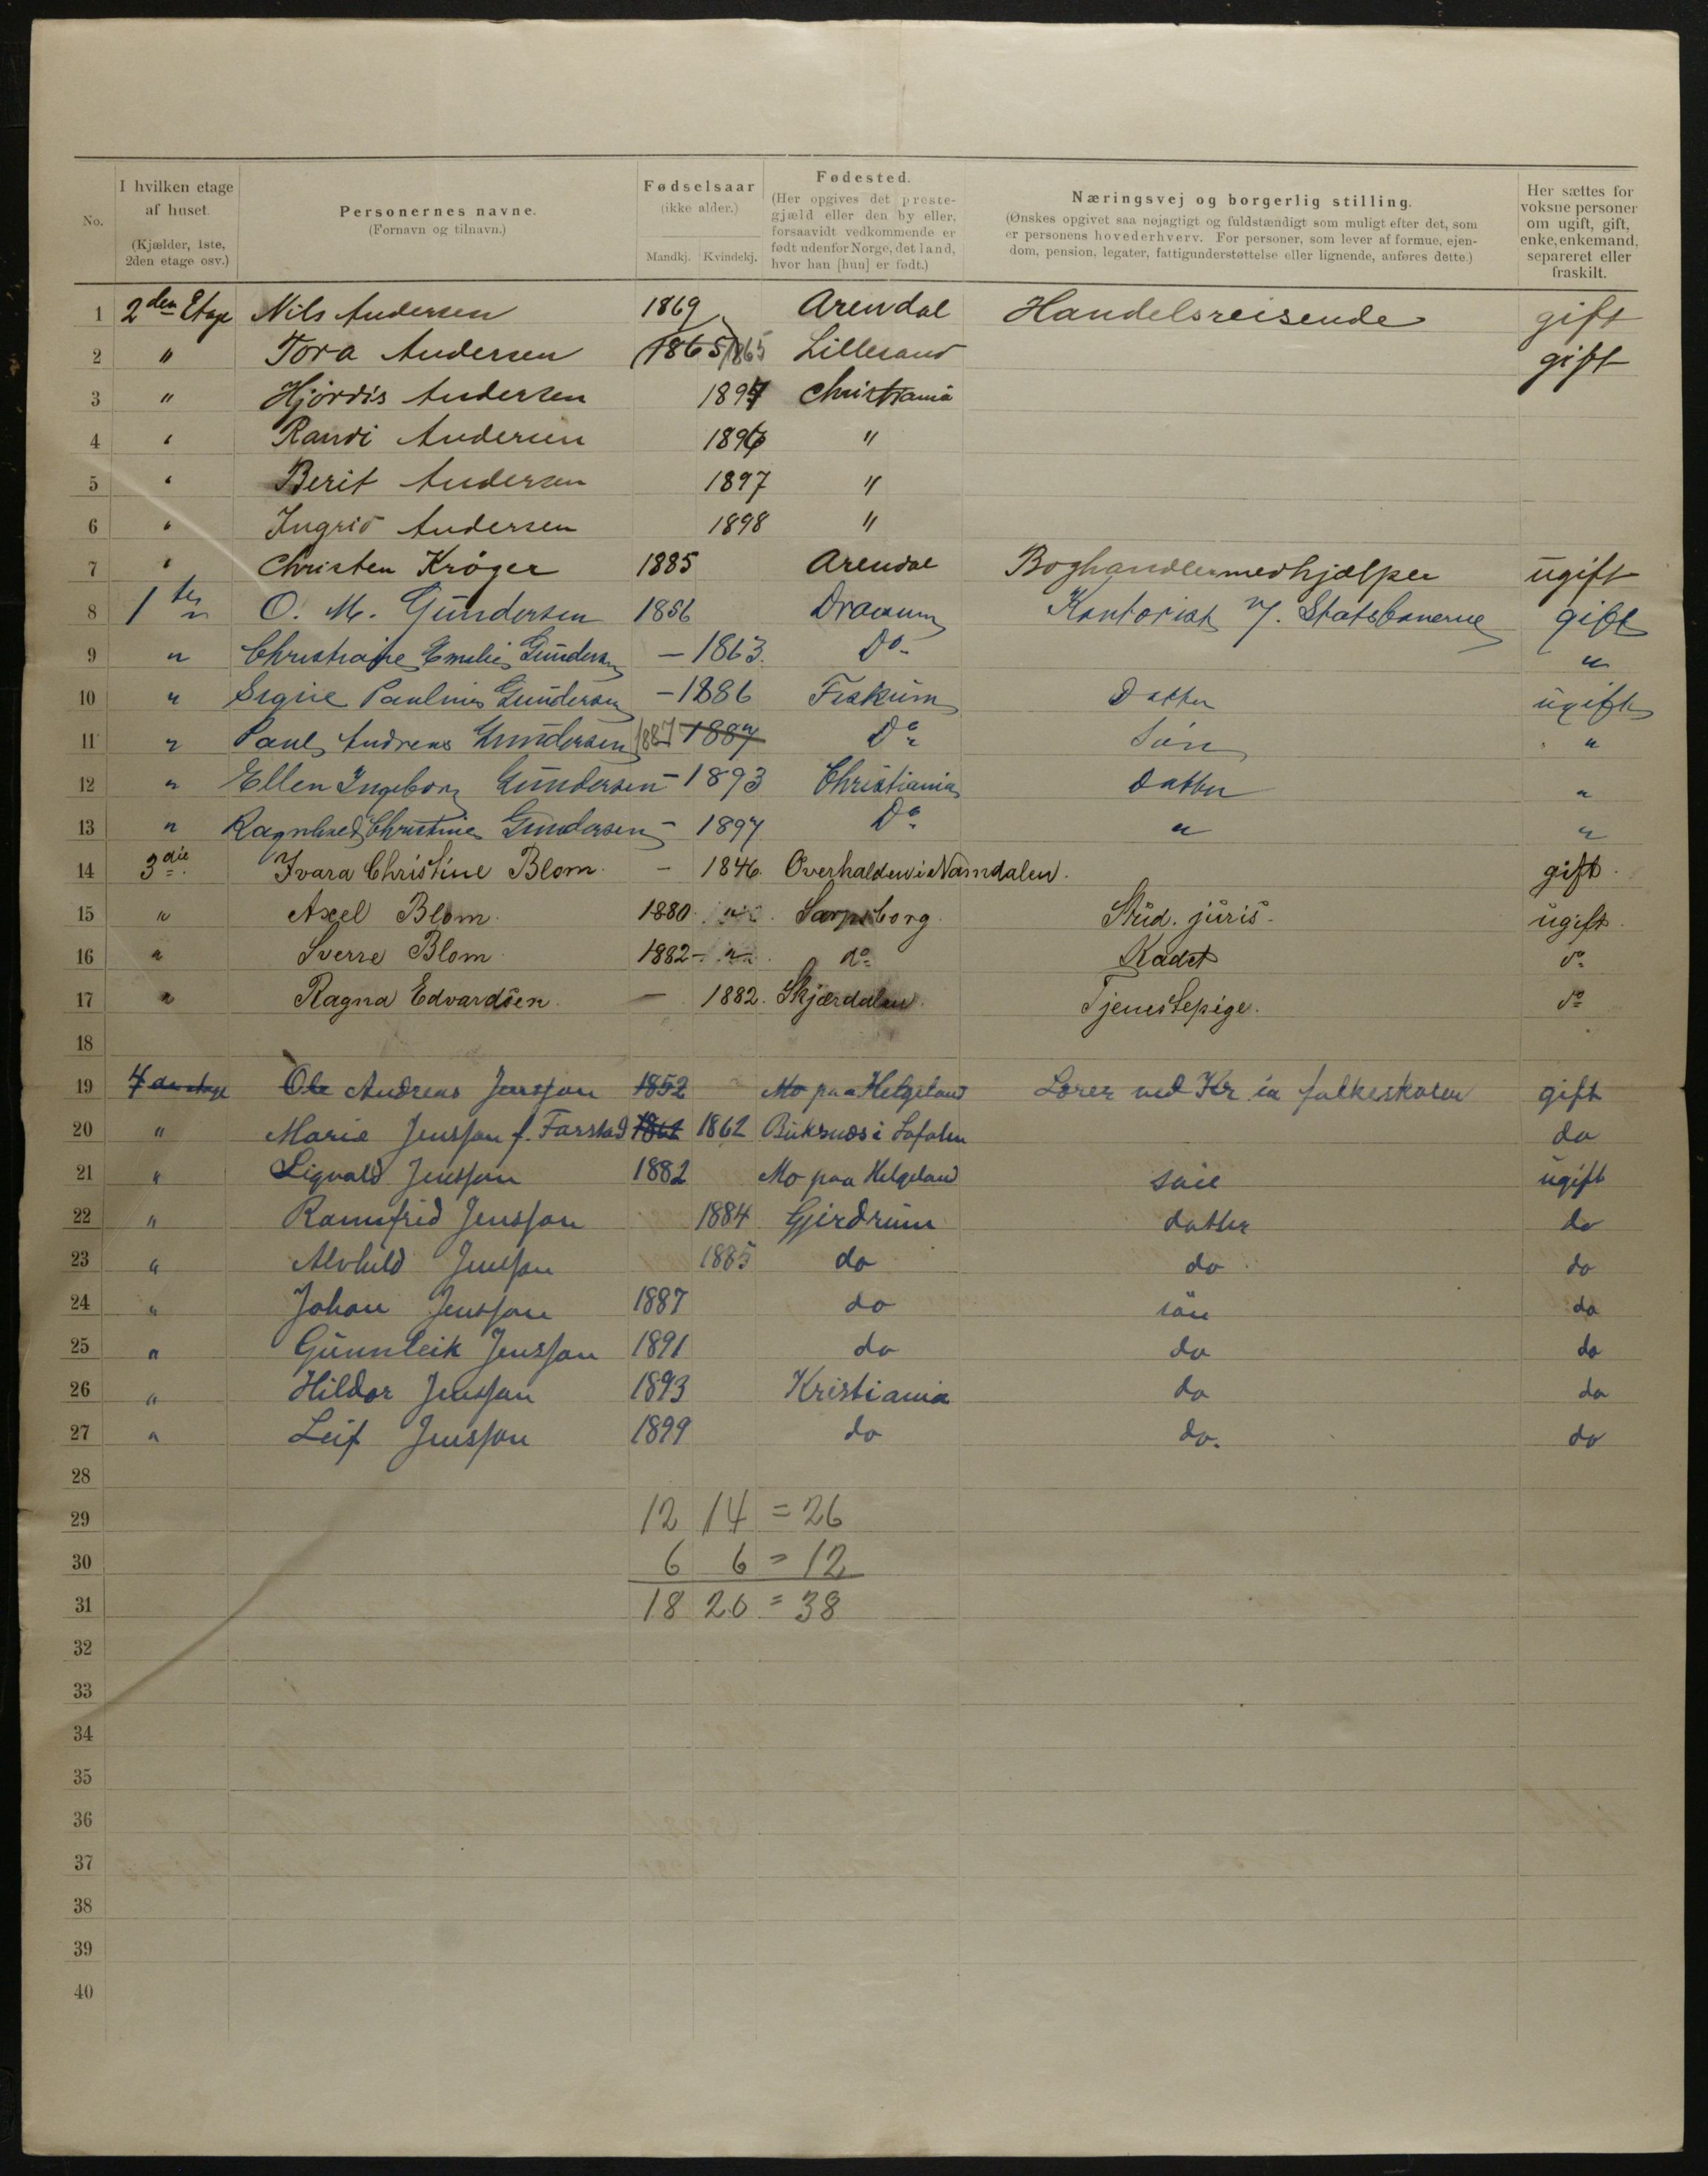 No.
I hvilken etage af huset. (Kjælder, 1ste, 2den etage osv.)
Personernes navne. (Fornavn og tilnavn.)
Fødselsaar (ikke alder.) Mandkj. Kvindekj.
Fødested. (Her opgives det prestegjæld eller den by eller, forsaavidt vedkommende er født udenfor Norge, det land, hvor han [hun] er født.)
Næringsvej og borgerlig stilling. (Ønskes opgivet saa nøjagtigt og fuldstændigt som muligt efter det, som er personens hovederhverv. For personer, som lever af formue, ejendom, pension, legater, fattigunderstøttelse eller lignende, anføres dette.)
Her sættes for voksne personer om ugift, gift, enke, enkemand, separeret eller fraskilt.
1 2den Etage Nils Andersen 1869 Arendal Handelsreisende gift
2 " Tora Andersen 1865 1865 Lillesand gift
3 " Hjördis Andersen 1894 Christiania
4 " Randi Andersen 1896 "
5 " Berit Andersen 1897 "
6 " Ingrid Andersen 1898 "
7 " Christen Kröger 1885 Arendal Boghandlermedhjælper ugift
8 1ste " O. M. Gundersen 1856 Drammen Kontorist v/. Statsbanerne gift
9 " Christiane Emilie Gundersen — 1863. Do "
10 " Signe Pauline Gundersen — 1886 Fiskum Datter ugift
11 " Paul Andreas Gundersen 1887 1887 Do Søn "
12 " Ellen Ingeborg Gundersen — 1893 Christiania Datter "
13 " Ragnhild Christine Gundersen — 1897 Do " "
14 3die Ivara Christine Blom — 1846. Overhalden i Namdalen. gift.
15 " Axel Blom. 1880 " Sarpsborg. Stud. juris. ugift.
16 " Sverre Blom 1882 — " do Kadet do
17 " Ragna Edvardsen. — 1882. Skjærdalen. Tjenestepige. do
18
19 4de etage Ole Andreas Jensson 1852 Mo paa Helgeland Lærer ved Kr.ia folkeskoler gift
20 " Marie Jensson f. Farstad 1862 1862 Buksnæs i Lofoten do
21 " Sigvald Jensson 1882 Mo paa Helgeland søn ugift
22 " Ramnfrid Jensson 1884 Gjerdrum datter do
23 " Alvhild Jensson 1885 do do do
24 " Johan Jensson 1887 do søn do
25 " Gunnleik Jensson 1891 do do do
26 " Hildor Jensson 1893 Kristiania do do
27 " Leif Jensson 1899 do do. do
28
29 12 14 = 26
30 6 6 = 12
31 18 20 = 38
32
33
34
35
36
37
38
39
40